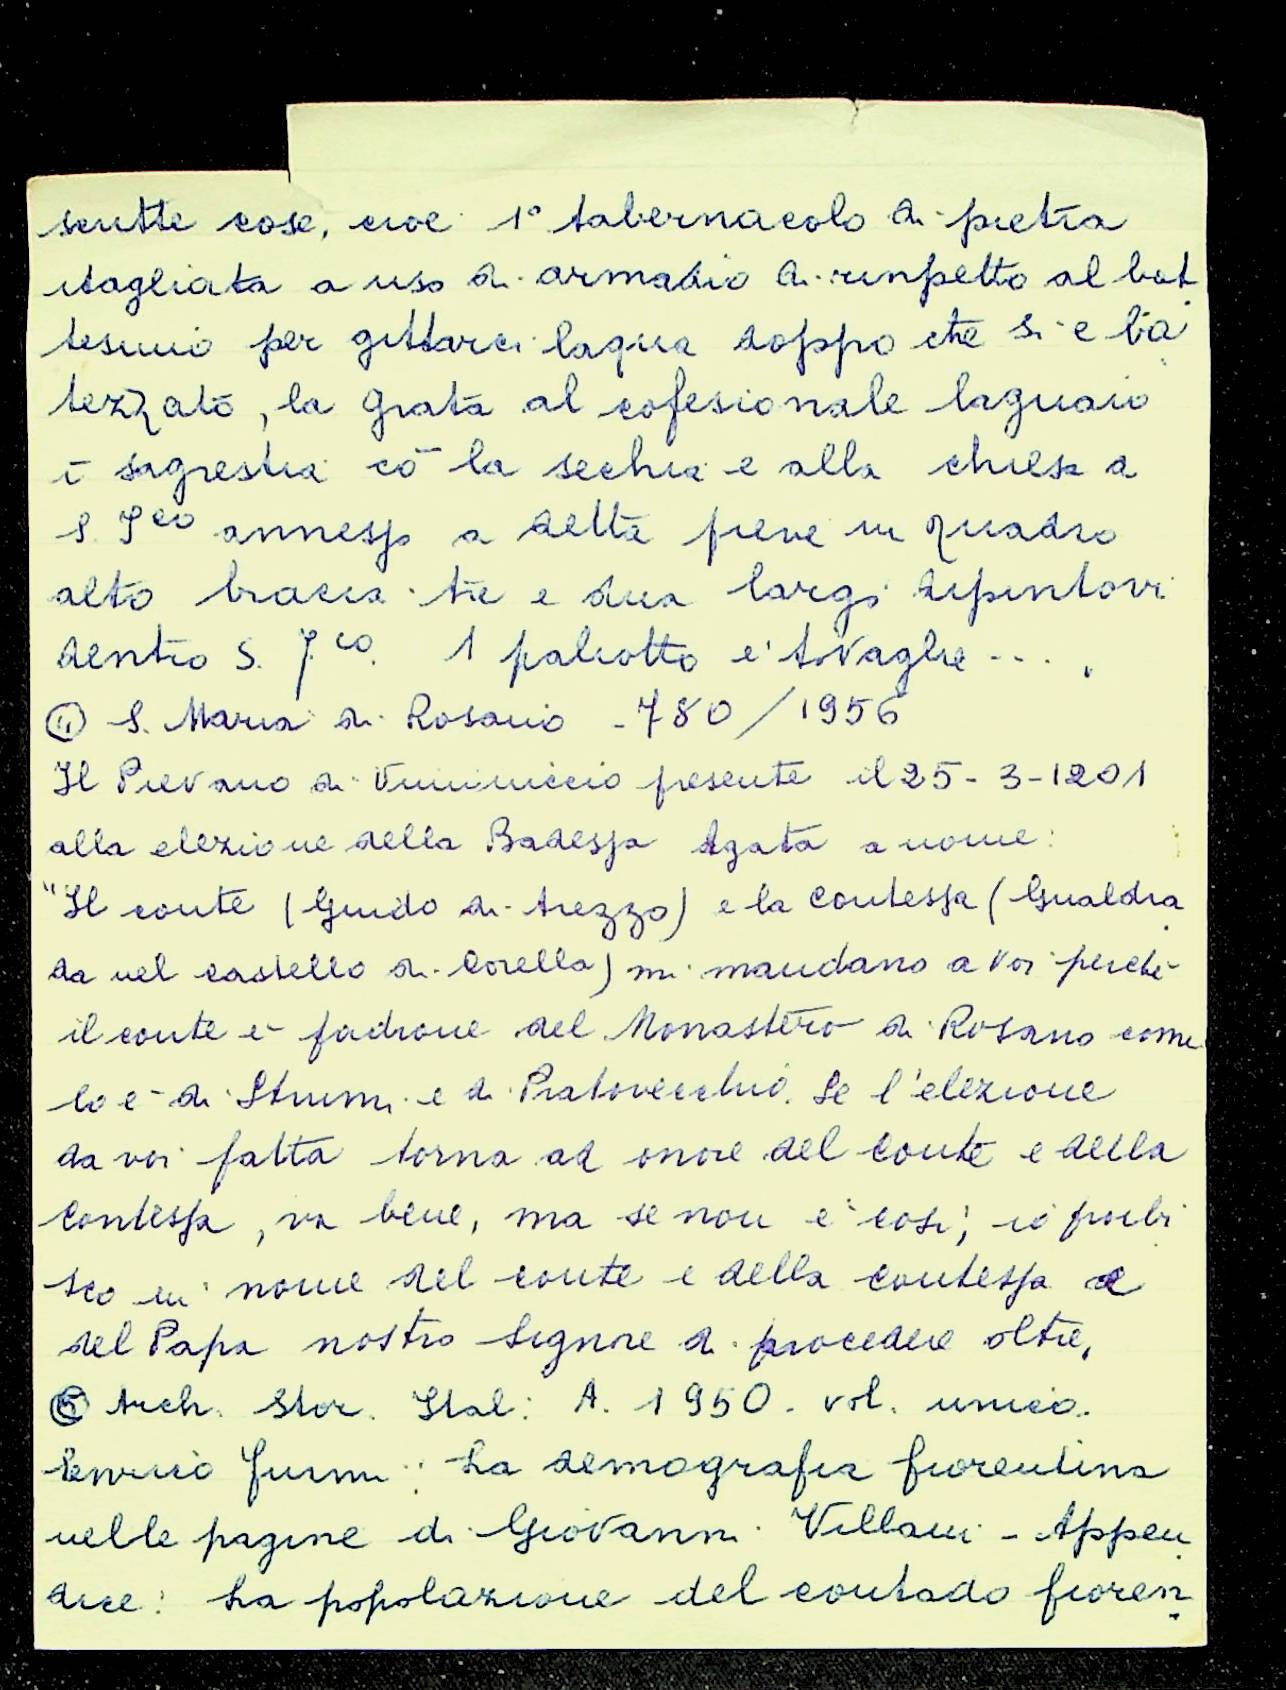 scritte cose, cioè 1° tabernacolo di pietra
itagliata a uso di armadio di rinpetto al bat
tesimo per gittarci laqua doppo che si e ba
tezzato, la grata al cofesionale laquaio
ī sagrestia cō la sechia e alla chiesa a
S. Fco annessa a detta pieve un quadro
alto bracia tre e dua largo dipintovi
dentro S. Fco. 1 paliotto e tovaglie ... .
④ S. Maria di Rosano - 780/1956
Il Pievano di Viminiccio presente il 25-3-1201
alla elezione della Badessa Agata a nome:
"Il conte (Guido di Arezzo) e la contessa (Gualdra
da nel castello di Corella) mi mandano a voi perchè
il conte è padrone del Monastero di Rosano come
lo è di Strumi e di Pratovecchio. Se l'elezione
da voi fatta torna ad onore del conte e della
contessa, va bene, ma se non è così, io proibi
sco in nome del conte e della contessa e
del Papa nostro Signore di procedere oltre.
⑤ Arch. Stor. Ital: A. 1950. vol. unico.
Enrico Fiumi: La demografia fiorentina
nelle pagine di Giovanni Villani - Appen
dice: La popolazione del contado fioren